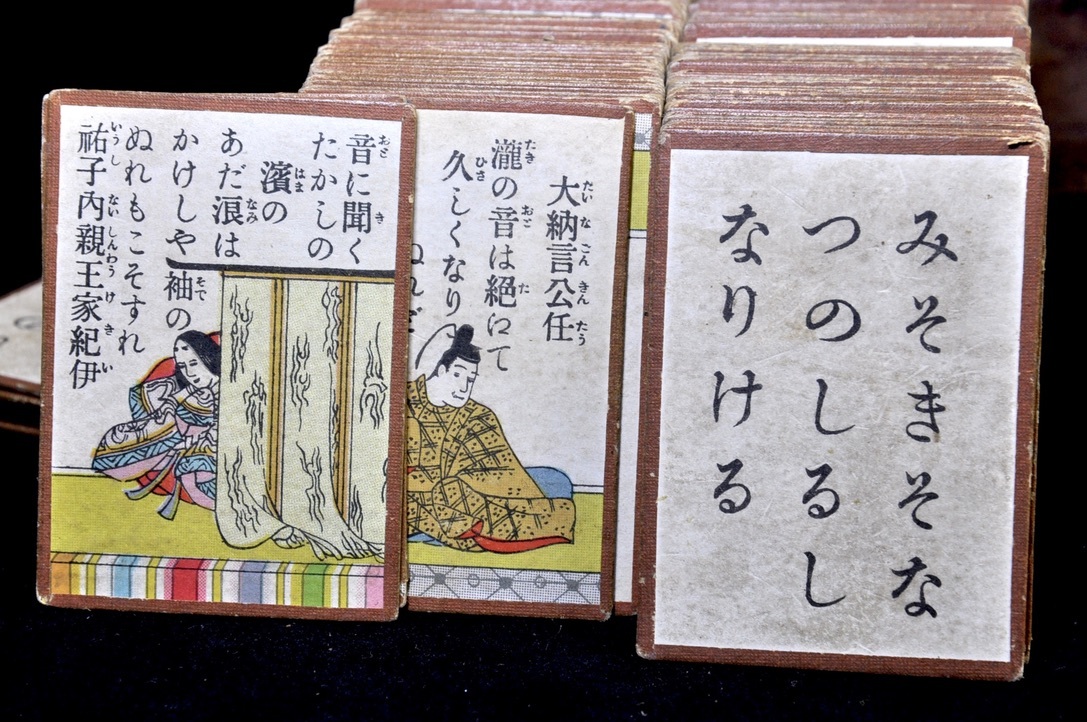 音に聞く
たかしの
濱の
あだ浪は
かけしや
袖の
ぬれもこそすれ
祐子内親王家紀伊
大納言公任
瀧の音は絶えて
久しくなり
ぬれど
みそきそな
つのしるし
なりける